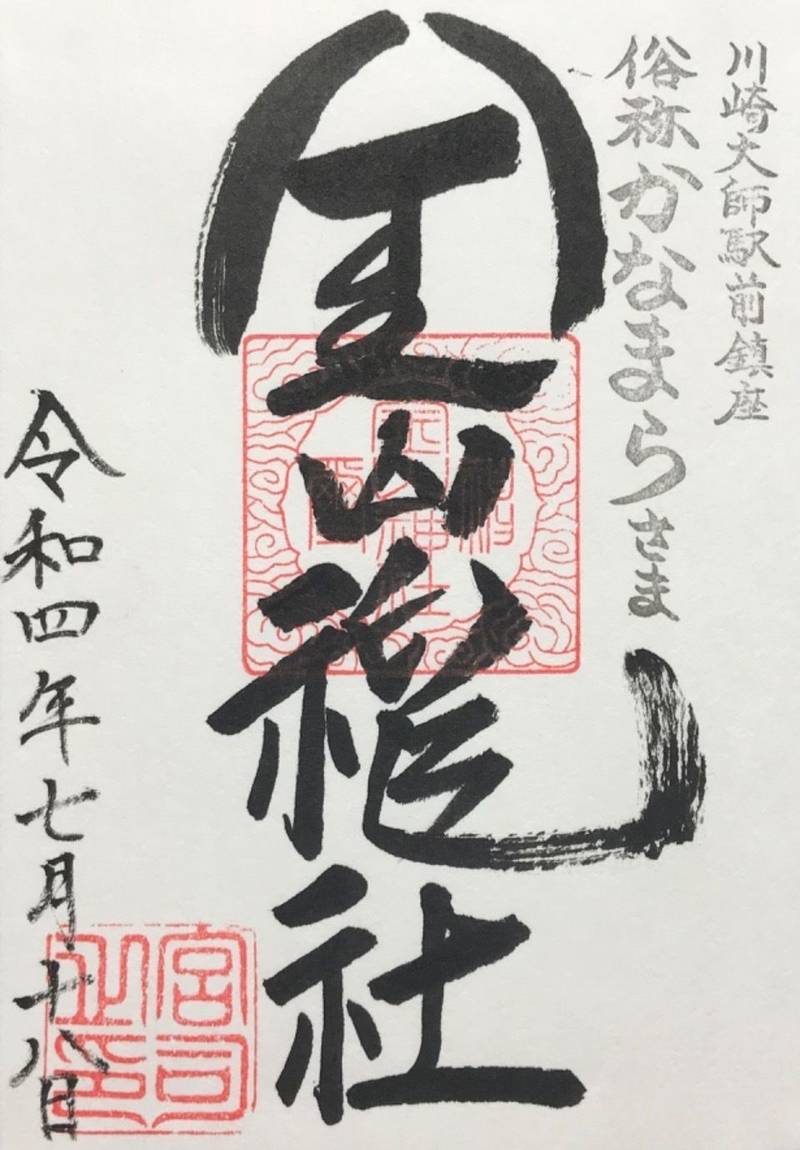 川崎大師駅前鎮座
俗称かなまらさま
金山神社
令和四年七月十八日
宮司之印